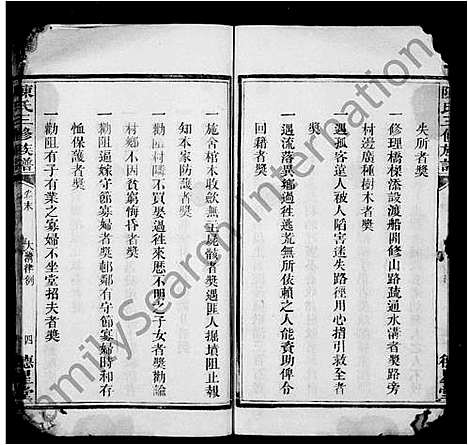 失所者獎
一修理橋樑添設渡船開修山路疏通水溝者獎路旁
村邊廣種樹木者獎
一遇孤客遠人被人陷害迷失路徑用心指引救全者
獎
一遇流落異鄉過往逃荒無所依賴之人能資助俾令
回籍者獎
一施舍棺木收歛無主屍骸者獎遇匪人掘墳阻止報
知本家防護者獎
一勸匪村隣不買娶過往來歷不明之子女者獎勸諭
村鄉不因貧窮悔昏者獎
一勸阻逼嫁守節寡婦者獎鄰有守節寡婦時和存
恤保護者獎
一勸阻有子有業之寡婦不坐堂招夫者獎
陳氏三修族譜
卷末
大清律例
四
德星堂
FamilySearch International